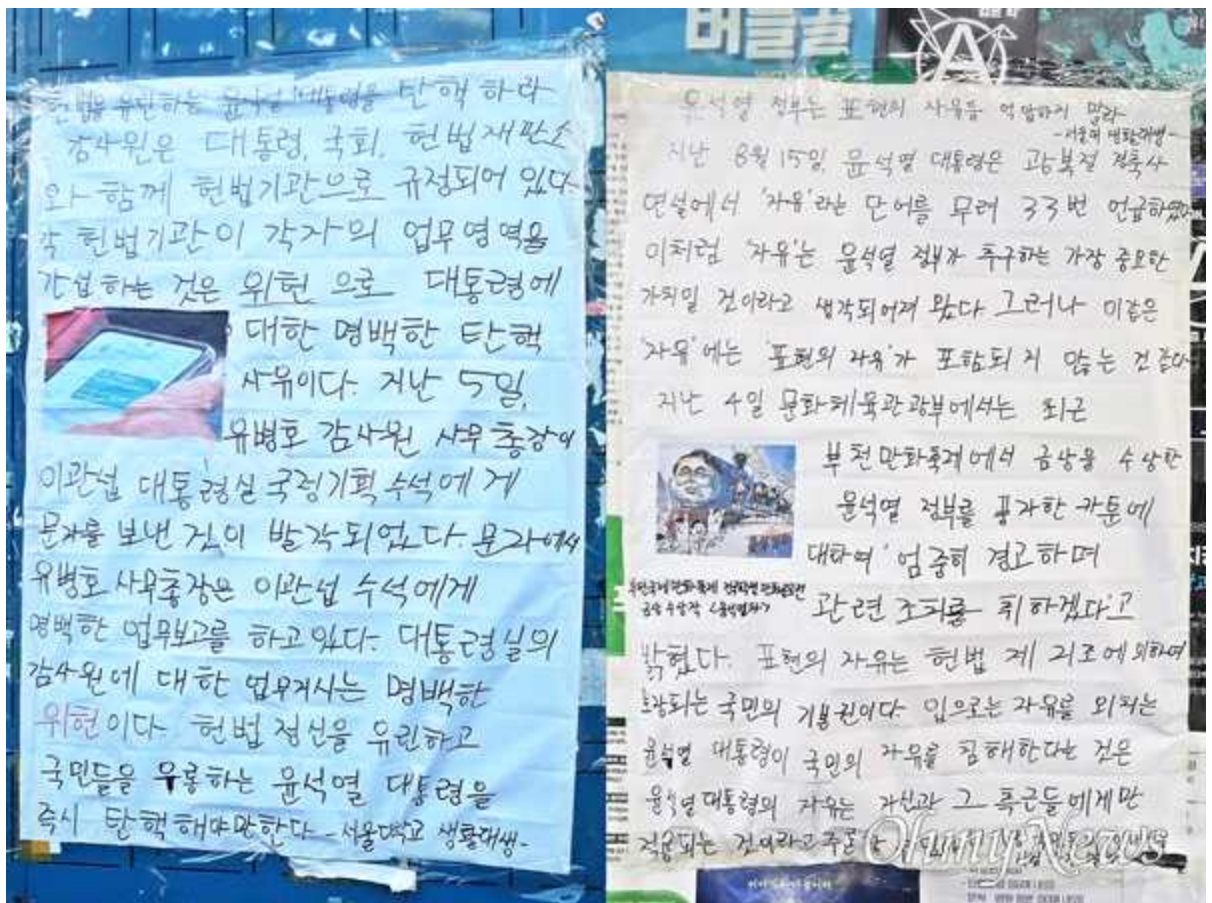 버들골
A
헌법을 유린하는 윤석열 대통령을 탄핵 하라
감사원은 대통령, 국회, 헌법재판소
와 함께 헌법기관으로 규정되어 있다
각 헌법기관이 각자의 업무영역을
간섭하는 것은 위헌 으로 대통령에
대한 명백한 탄핵
사유이다. 지난 5일,
유병호 감사원 사무총장이
이관섭 대통령실 국정기획수석에게
문자를 보낸 것이 발각되었다. 문자에서
유병호 사무총장은 이관섭 수석에게
명백한 업무보고를 하고있다. 대통령실의
감사원에 대한 업무지시는 명백한
위헌이다. 헌법 정신을 유린하고
국민들을 우롱하는 윤석열 대통령을
즉시 탄핵해야만한다 -서울대학교 생활대생-
윤석열 정부는 표현의 자유를 억압하지 말라
-서울대 생활대생-
지난 8월 15일, 윤석열 대통령은 광복절 경축사
연설에서 '자유'라는 단어를 무려 33번 언급하였다
이처럼 '자유'는 윤석열 정부가 추구하는 가장 중요한
가치일 것이라고 생각되어져 왔다 그러나 이같은
'자유'에는 '표현의 자유'가 포함되지 않는 것 같다
지난 4일 문화체육관광부에서는 최근
부천만화축제에서 금상을 수상한
윤석열 정부를 풍자한 카툰에
대하여 '엄중히 경고하며
관련 조치를 취하겠다'고
밝혔다. 표현의 자유는 헌법 제 21조에 의하여
보장되는 국민의 기본권이다. 입으로는 자유를 외치는
윤석열 대통령이 국민의 자유를 침해한다는 것은
윤석열대통령의 자유는 자신과 그 측근들에게만
적용되는 것이라고
OhmyNews